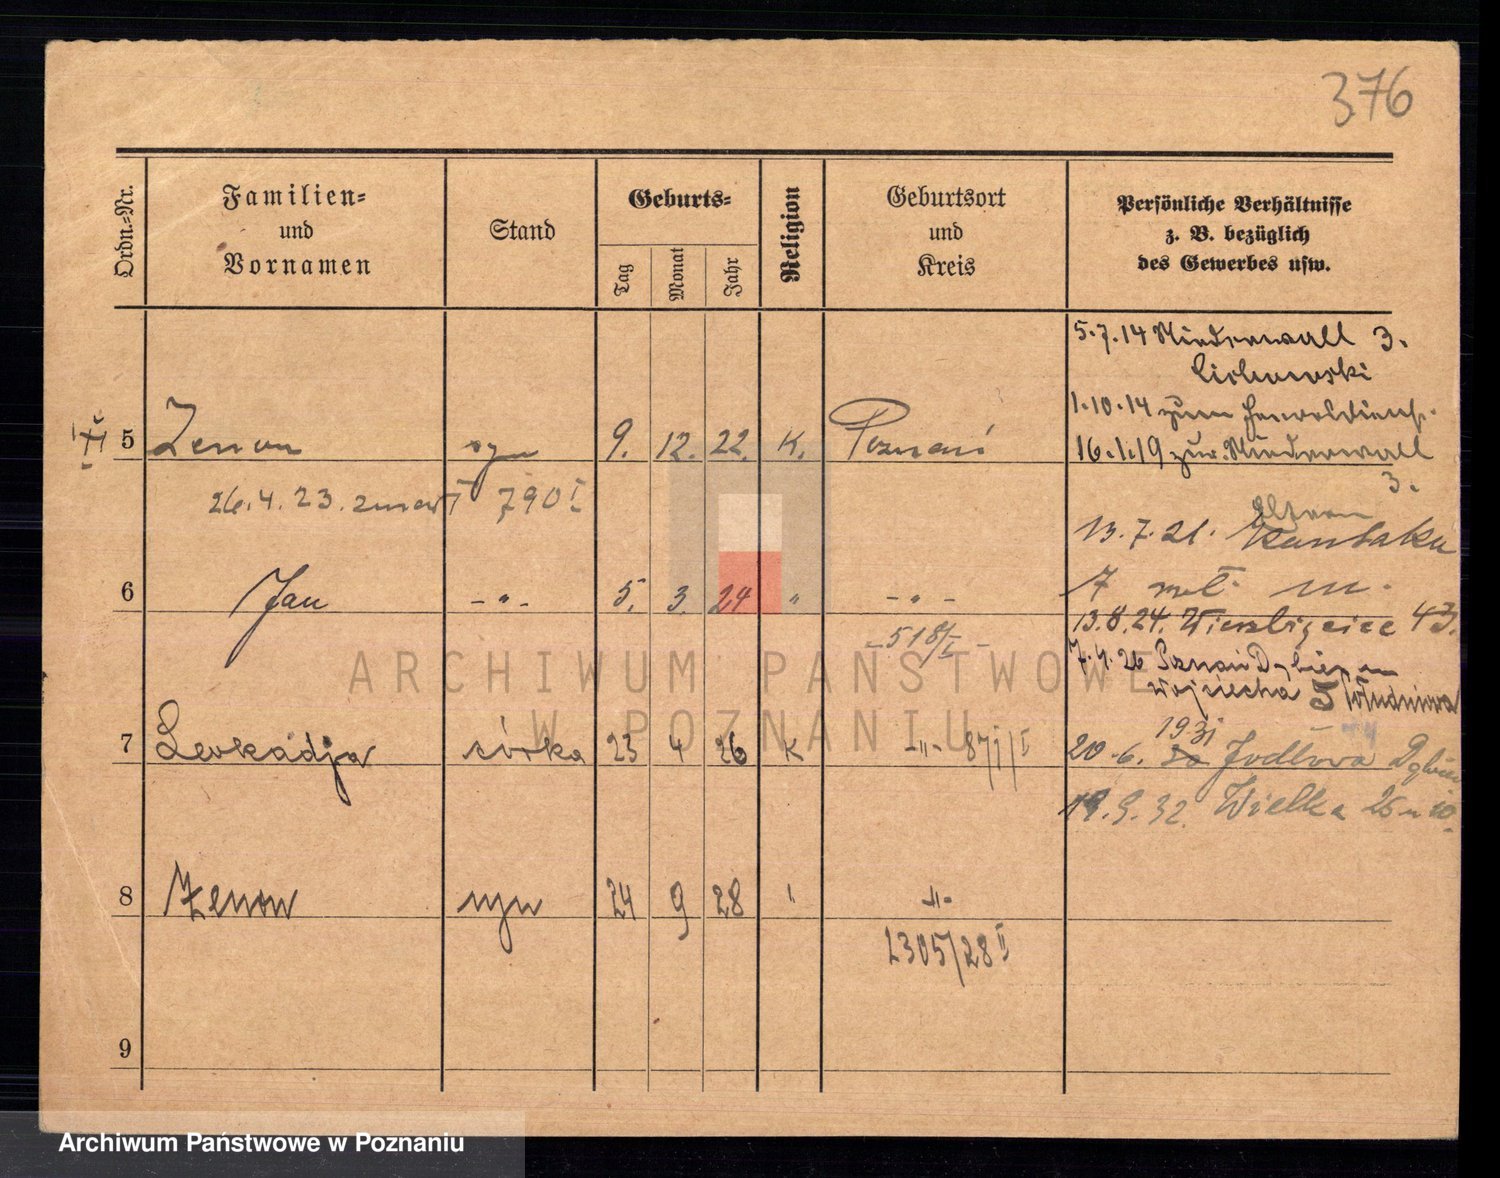 376
Ordn.-Nr.
Familien-
und
Vornamen
Stand
Geburts-
Tag Monat Jahr
Religion
Geburtsort
und
Kreis
Persönliche Verhältnisse
z. B. bezüglich
des Gewerbes usw.
5.7.14 Niederwall 3.
Cichowski
1.10.14 zum
5 Zenon syn 9. 12. 22. K. Poznań
16.1.19 zur. Niederwall
3.
26.4.23. zmarł 790 I
Eltern
13.7.21. Kantaka
7 m.
6 Jan - " - 5. 3. 24 " - " -
13.8.24. Wierzbięcice 43.
- 518/I -
7.4.26 Poznań Dębiec
Wojciecha 5 Południowa
7 Leokadja córka 23 4 26 K - " - 871/I
1931
20.6. 30 Jodłowa Dębiec
19.9.32. Wielka 25
8 Zenon syn 24 9 28 " - " -
2305/28 II
9
ARCHIWUM PAŃSTWOWE
W POZNANIU
Archiwum Państwowe w Poznaniu